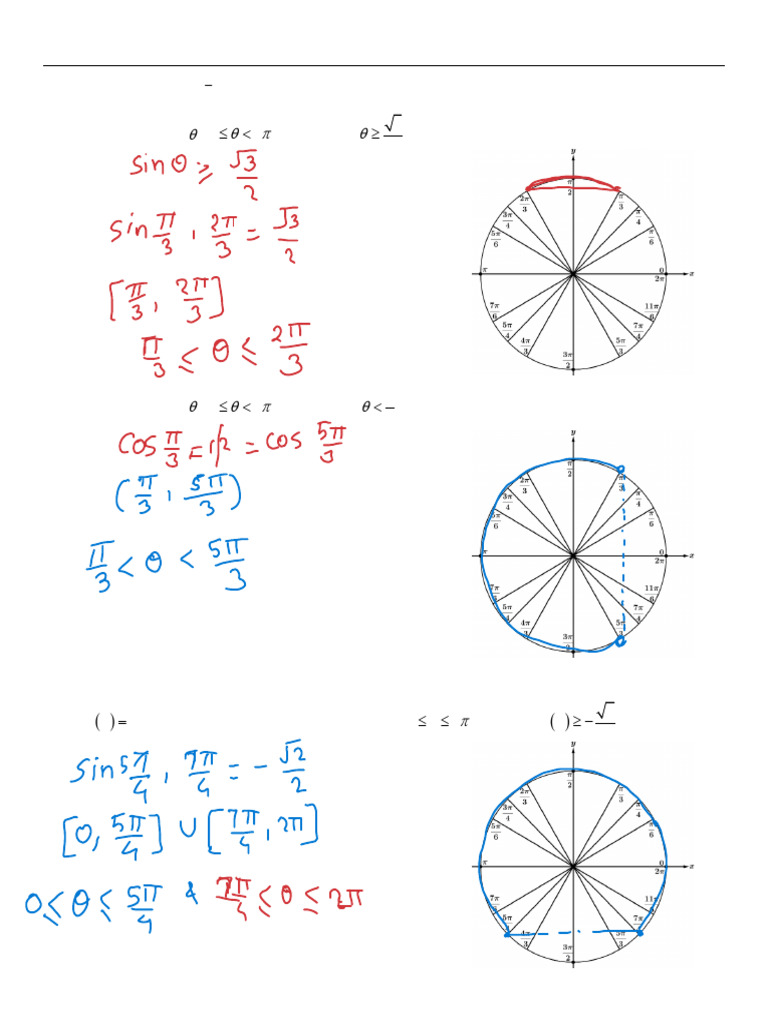 θ ≤ θ < π θ ≥ √
sin θ ≥ √3/2
sin π/3 , 2π/3 = √3/2
[π/3 , 2π/3]
π/3 ≤ θ ≤ 2π/3
y
π/2
2π/3 π/3
3π/4 π/4
5π/6 π/6
π 0 x
2π
7π/6 11π/6
5π/4 7π/4
4π/3 5π/3
3π/2
θ ≤ θ < π θ < −
cos π/3 = 1/2 = cos 5π/3
(π/3 , 5π/3)
π/3 < θ < 5π/3
y
π/2
2π/3 π/3
3π/4 π/4
5π/6 π/6
π 0 x
2π
7π/6 11π/6
5π/4 7π/4
4π/3 5π/3
3π/2
( ) = ≤ ≤ π ( ) ≥ − √
sin 5π/4 , 7π/4 = − √2/2
[0, 5π/4] ∪ [7π/4 , 2π]
0 ≤ θ ≤ 5π/4 & 7π/4 ≤ θ ≤ 2π
y
π/2
2π/3 π/3
3π/4 π/4
5π/6 π/6
π 0 x
2π
7π/6 11π/6
5π/4 7π/4
4π/3 5π/3
3π/2